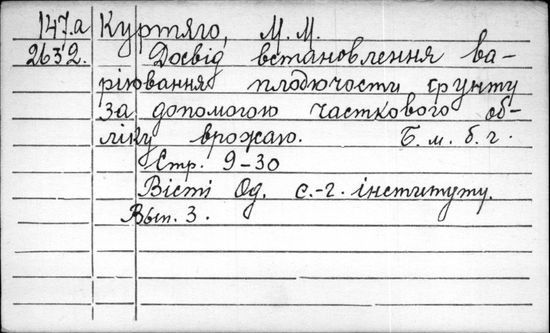 147.а Куртяго, М. М.
2632. Досвід встановлення ва-
ріювання плодючости ґрунту
за допомогою часткового об-
ліку врожаю. Б. м. б. г.
Стр. 9-30
Вісті Од. с.-г. інституту.
Вып. 3.